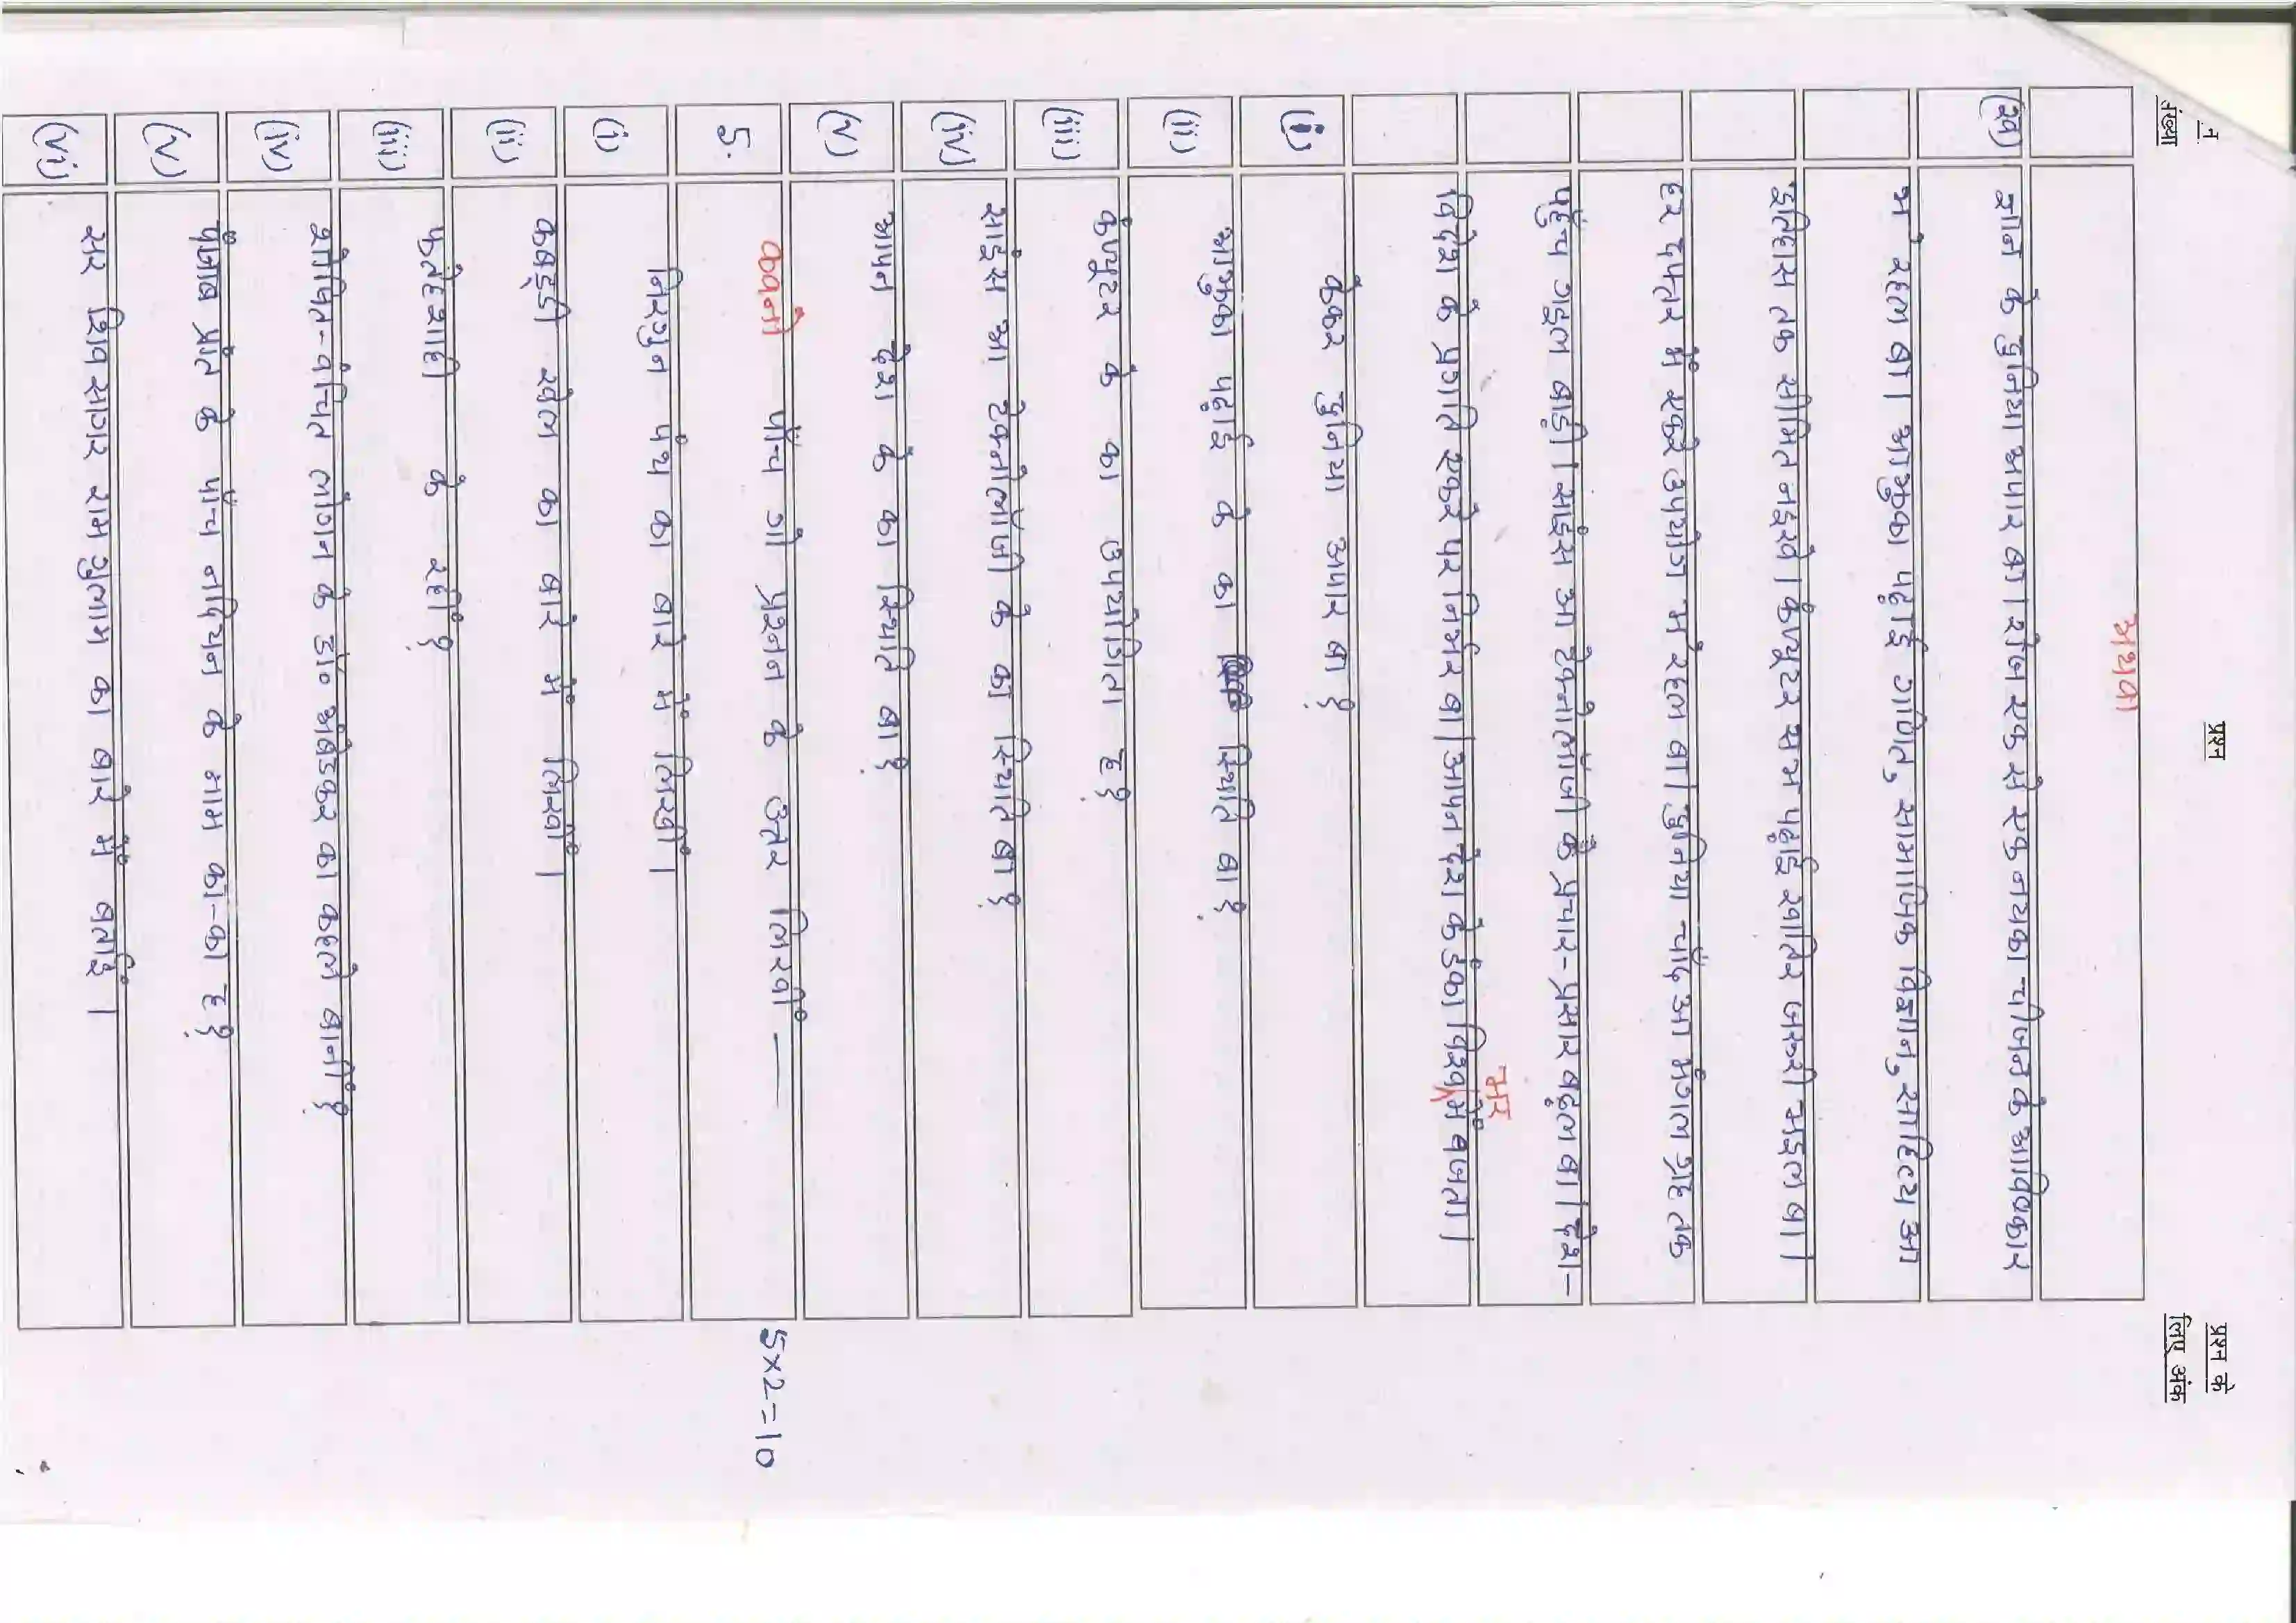 न
संख्या
प्रश्न
प्रश्न के
लिए अंक
अथवा
(ख) ज्ञान के दुनिया अपार बा। रोज एक से एक नयका चीजन के आविष्कार
हो रहल बा। आजुका पढ़ाई गणित, सामाजिक विज्ञान, साहित्य आ
इतिहास तक सीमित नइखे। कंप्यूटर सभ पढ़ाई खातिर जरूरी भइल बा।
हर दफ्तर में एकरे उपयोग हो रहल बा। दुनिया चाँद आ मंगल ग्रह तक
पहुँच गइल बाड़ी। साइंस आ टेक्नोलॉजी के प्रचार-प्रसार बढ़ल बा। देश-
विदेश के प्रगति एकरे पर निर्भर बा। आपन देश के डंका विश्व भर में बजता।
(i) केकर दुनिया अपार बा?
(ii) आजुका पढ़ाई के का स्थिति बा?
(iii) कंप्यूटर के का उपयोगिता ह?
(iv) साइंस आ टेक्नोलॉजी के का स्थिति बा?
(v) आपन देश के का स्थिति बा?
5. कवनो पाँच गो प्रश्नन के उत्तर लिखीं — 5×2=10
(i) निरगुन पंथ का बारे में लिखीं।
(ii) कबड्डी खेल का बारे में लिखीं।
(iii) फतेहशाही के रहीं?
(iv) शोषित-वंचित लोगन के डॉ० अंबेडकर का कहले बानीं?
(v) पंजाब प्रांत के पाँच नदियन के नाम का-का ह?
(vi) सर शिवसागर रामगुलाम का बारे में बताईं।